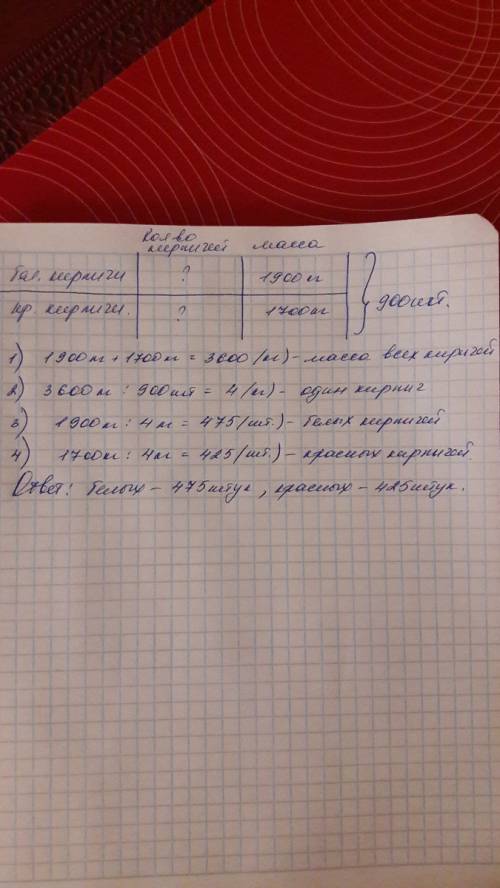 Кол-во
кирпичей масса
бел. кирпичи ? 1900 кг
кр. кирпичи. ? 1700 кг } 900 шт.
1) 1900 кг + 1700 кг = 3600 (кг) - масса всех киричей
2) 3600 кг : 900 шт = 4 (кг) - один кирпич
3) 1900 кг : 4 кг = 475 (шт.) - белых кирпичей
4) 1700 кг : 4 кг = 425 (шт.) - красных кирпичей
Ответ: белых - 475 штук, красных - 425 штук.